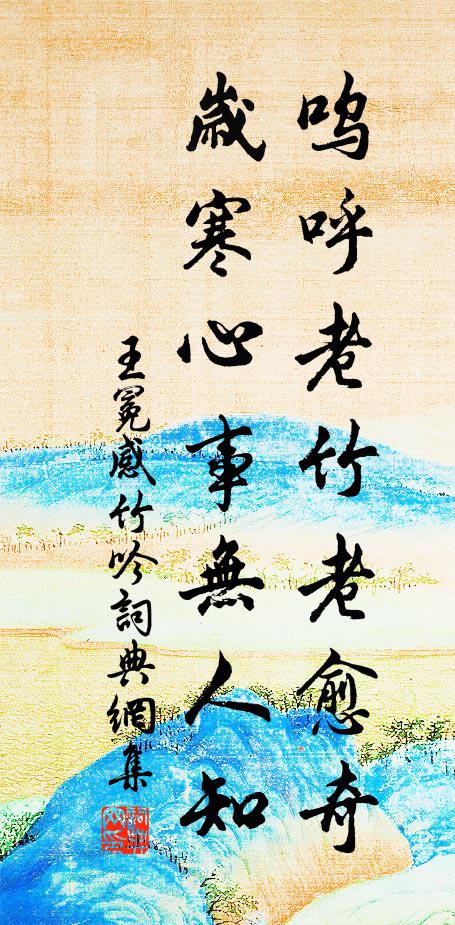 嗚呼老竹老愈奇
歲寒心事無人知
王冕感竹吟詞典網集